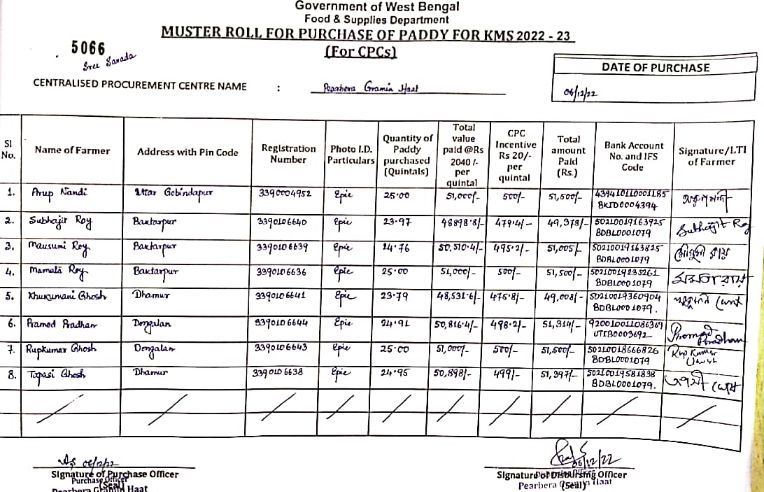 Government of West Bengal
Food & Supplies Department
MUSTER ROLL FOR PURCHASE OF PADDY FOR KMS 2022 - 23
(For CPCs)
5066
Sree Sarada
DATE OF PURCHASE
06/12/22
CENTRALISED PROCUREMENT CENTRE NAME : Pearbera Gramin Haat
Sl No. Name of Farmer Address with Pin Code Registration Number Photo I.D. Particulars Quantity of Paddy purchased (Quintals) Total value paid @Rs 2040 /- per quintal CPC Incentive Rs 20/- per quintal Total amount Paid (Rs.) Bank Account No. and IFS Code Signature/LTI of Farmer
1. Anup Nandi Uttar Gobindapur 3390004952 Epic 25.00 51,000/- 500/- 51,500/- 439410110001185
BKID0004394
2. Subhajit Roy Baktarpur 3390106640 Epic 23.97 48898.8/- 479.4/- 49,378/- 50210019163925 Subhajit Roy
BDBL0001079
3. Mausumi Roy Baktarpur 3390106639 Epic 24.76 50,510.4/- 495.2/- 51,005/- 50210019163825 মৌসুমী রায়
BDBL0001079
4. Mamata Roy Baktarpur 3390106636 Epic 25.00 51,000/- 500/- 51,500/- 50210019135261 মমতা রায়
BDBL0001079
5. Khukumani Ghosh Dhamur 3390106641 Epic 23.79 48,531.6/- 475.8/- 49,008/- 50210019360904
BDBL0001079.
6. Pramod Pradhan Dongalan 3390106644 Epic 24.91 50,816.4/- 498.2/- 51,314/- 920010011086369 Promod
UTIB0003692 Pradhan
7. Rupkumar Ghosh Dongalan 3390106643 Epic 25.00 51,000/- 500/- 51,500/- 50210018666826 Rup Kumar
BDBL0001079
8. Tapasi Ghosh Dhamur 3390106638 Epic 24.95 50,898/- 499/- 51,397/- 50210019581838 তপসী ঘোষ
BDBL0001079.
06/12/22
06/12/22
Signature of Purchase Officer
Purchase Officer
(Seal)
Pearbera Gramin Haat
Signature of Disbursing Officer
(Seal)
Pearbera Gramin Haat